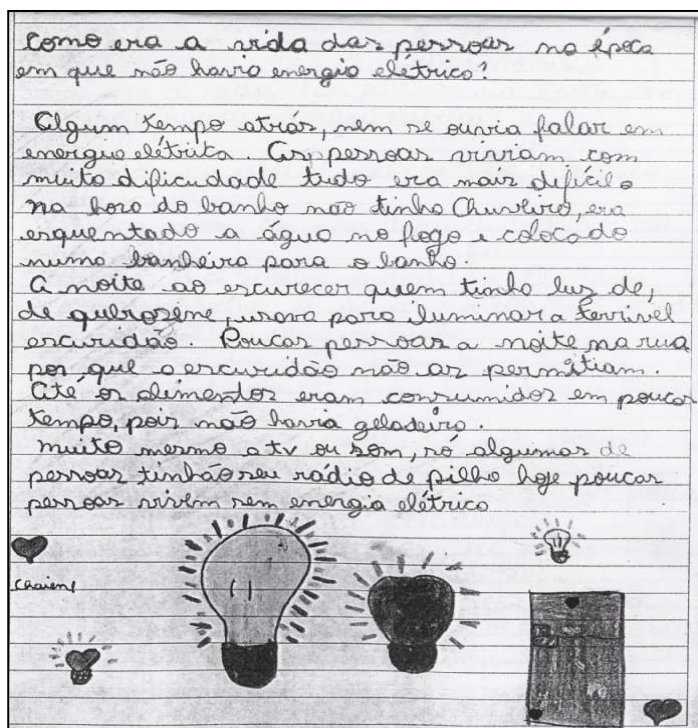 Como era a vida das pessoas na época
em que não havia energia elétrica?
Algum tempo atrás, nem se ouvia falar em
energia elétrita. As pessoas viviam com
muita dificudade tudo era mais difícil.
na hora do banho não tinha Chuveiro, era
esquentado a água no fogo e colocado
numa banheira para o banho.
A noite ao escurecer quem tinha luz de,
de querosene, usava para iluminar a terrivel
escuridão. Poucas pessoas a noite na rua
por que a escuridão não as permitiam.
Até os alimentos eram consumidos em poucos
tempo, pois não havia geladeira.
muito mesmo a tv ou som, só algumas de
pessoas tinhão seu rádio de pilha hoje poucas
pessoas vivem sem energia elétrica